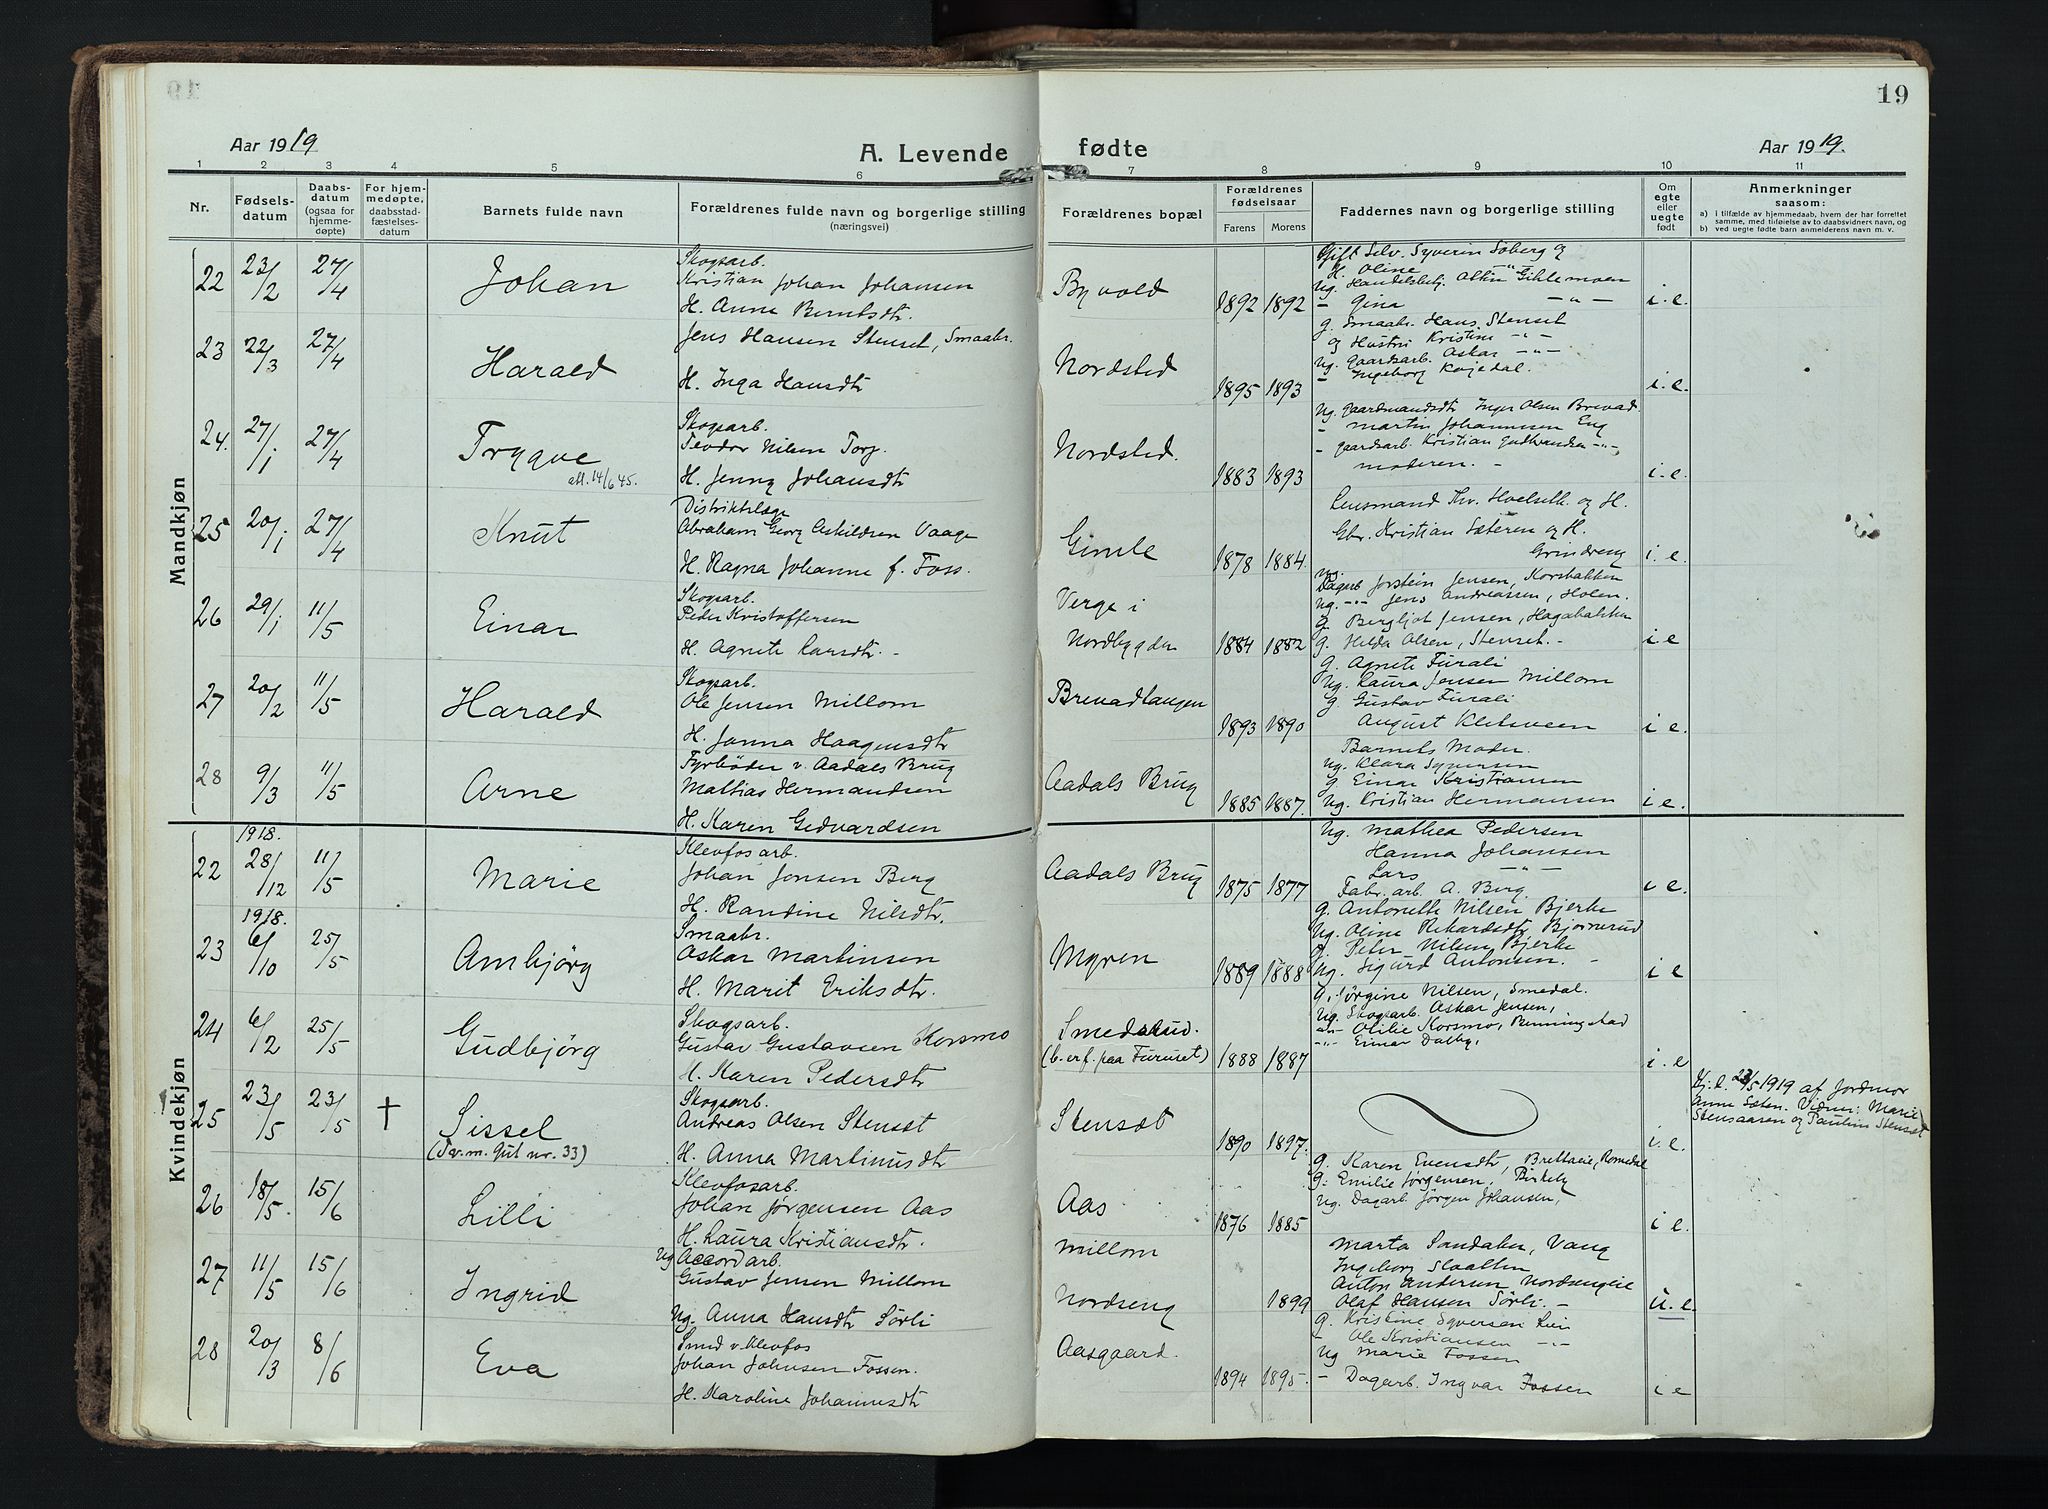 19
Aar 1919
A. Levende
fødte
Aar 1919.
1 2 3 4 5 6 7 8 9 10 11
Nr.
Fødselsdatum
Daabsdatum (ogsaa for hjemmedøpte)
For hjemmedøpte, daabsstadfæstelsesdatum
Barnets fulde navn
Forældrenes fulde navn og borgerlige stilling (næringsvei)
Forældrenes bopæl
Forældrenes fødselsaar
Farens Morens
Faddernes navn og borgerlige stilling
Om egte eller uegte født
Anmerkninger saasom:
a) i tilfælde av hjemmedaab, hvem der har forrettet samme, med tilføielse av to daabsvidners navn, og
b) ved uegte fødte barn anmelderens navn m. v.
Mandkjøn
22 23/2 27/4 Johan
Skogsarb.
Kristian Johan Johansen
H. Anne Berntsdtr.
Byvold 1892 1892
Gift Selv. Syverin Soberg og
H. Oline -"-
Ug. Handelsbetj.
- Gina -"-
i.e.
23 22/3 27/4 Harald
Jens Hansen Stenset, Smaabr.
H. Inga Hansdtr
Nordsted 1895 1893
g. Smaabr. Hans Stenset
og Hustru Kristine -"-
Ug. gaardsarb. Askar -"-
- Ingeborg
i.e.
24. 27/1 27/4 Trygve
utl. 14/6 45.
Skogsarb.
Teodor Nilsen Torp.
H. Jenny Johansdtr
Nordsted. 1883 1893
Ug. gaardmandsdtr Inger Olsen Brevad.
- Martin Johannesen Eng
- gaardsarb. Kristian Gudbrandsen -"-
moderen. -
i.e.
25 20/1 27/4 Knut
Distriktslæge
Abraham Georg Askildsen Vaage
H. Ragna Johanne f. Foss.
Gimle 1878 1884.
Lensmand Thv. Hoelseth og H.
Gbr. Kristian Sæteren og H.
Grindreng
i.e.
26 29/1 11/5 Einar
Skogsarb.
Peder Kristoffersen
H. Agnete Larsdtr. -
Verge i
Nordbygden 1884 1882
Ug.
Dagarb Jorstein Jensen, Korsbakken
Ug. -"- Jens Andreassen, Holen.
g. Bergljot Jensen, Hagabakken
g. Helda Olsen, Stenset. -
i e
27 20/2 11/5 Harald
Skogsarb.
Ole Jensen Millom
H. Janna Haagensdtr
Brevadlangen 1893 1890
g. Agnete Furali
Ug. Laura Jensen Millom
g. Gustav Furali
August Kletsveen
i e.
28 9/3 11/5 Arne
Fyrbøder v. Aadals Brug
Mathias Hermandsen
H. Karen Gedvardsen
Aadals Brug 1885 1887.
Barnets Moder.
Ug. Klara Syversen
g. Einar Kristiansen
Ug. Kristian Hermansen
i e.
Kvindekjøn
22 1918. 28/12 11/5 Marie
Klevfosarb.
Johan Jensen Berg
H. Randine Nilsdtr.
Aadals Brug 1875 1877
Ug. Mathea Pedersen
Hanna Johansen
Lars -"-
Fabr. arb. A. Berg.
i e.
23 1918. 6/10 25/5 Ambjörg
Smaabr.
Askar Martinsen
H. Marit Eriksdtr.
Myren 1889 1888
g. Antonette Nilsen Bjerke
Ug. Oline Rikardsdtr Bjørnerud
g. Peter Nilsen Bjerke
Ug. Sigurd Antonsen. -
i e
24 6/2 25/5 Gudbjörg
Skogsarb.
Gustav Gustavsen Korsmo
H. Karen Pedersdtr
Smedsrud.
(b. er f. paa Furuset) 1888 1887
g. Jørgine Nilsen, Smedal.
Ug. Skogsarb. Askar Jensen,
-"- Otilie Korsmo, Benningstad
-"- Einar Dalby,
i. e
25 23/5 23/5 † Sissel
(Tv. m. Gut nr. 33)
Skogsarb.
Andreas Olsen Stenset
H. Anna Martinusdtr
Stenset 1890 1897.
i. e.
Hj. d. 23/5 1919 af Jordmor
Anne Sæten. Vidner: Marie
Stensaasen og Pauline Stenset
26 18/5. 15/6 Lilli
Klevfosarb.
Johan Jørgensen Aas
H. Laura Kristiansdtr.
Aas 1876 1885
g. Karen Evensdtr, Romedal
g. Emilie Jørgensen, Birkely
Ug. Dagarb. Jörgen Johansen,
i e.
27 11/5 15/6 Ingrid
Ug Accordarb.
Gustav Jensen Millom
Ug. Anna Hansdtr Sörli
Millom
Nordseng 1899
Marta Sandaker, Vang
Ingeborg Slaatten
Anton Andersen Nordsengeie
Olaf Hansen Sörli. -
u. e.
28 20/3 8/6 Eva
Smed v. Klevfos
Johan Johnsen Fossen.
H. Karoline Johannesdtr
Aasgaard. 1894 1895.
g. Kristine Syversen Lier
- Ole Kristiansen -"-
Ug Marie Fossen
- Dagarb. Ingvar Fossen
i e